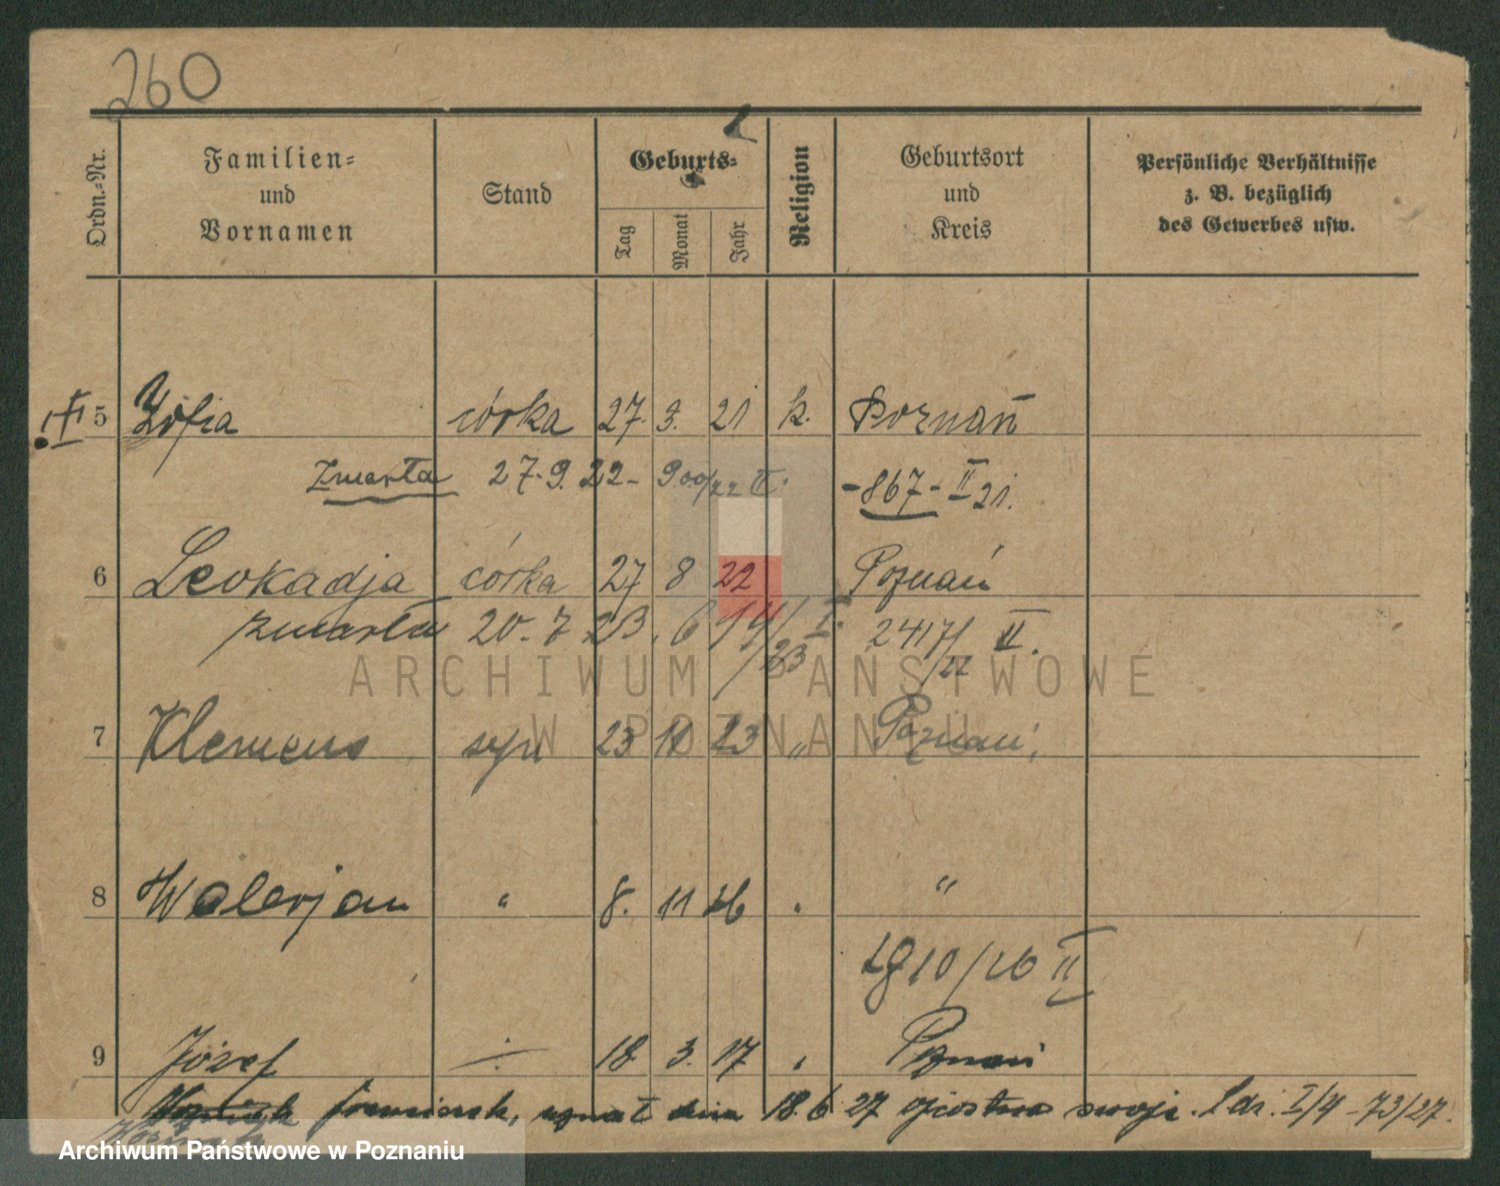 260
Ordn.-Nr.
Familien-
und
Vornamen
Stand
Geburts-
Tag
Monat
Jahr
Religion
Geburtsort
und
Kreis
Persönliche Verhältnisse
z. B. bezüglich
des Gewerbes usw.
5 Zofia córka 27. 3. 21 k. Poznań
zmarła 27.9.22 - 900/22 II. -867- II 21.
6 Leokadja córka 27 8 22 Poznań
zmarła 20. 7 23. 2417/22 II.
7 Klemens syn 23 10 23 " Poznań
8 Walerjan " 8. 11 26 "
2910/26 II
9 Józef 18. 3. 17 Poznań
uznał dnia 18. 6 27 ojcostwo swoje. I/4 - 73/27.
ARCHIWUM PAŃSTWOWE
W POZNANIU
Archiwum Państwowe w Poznaniu